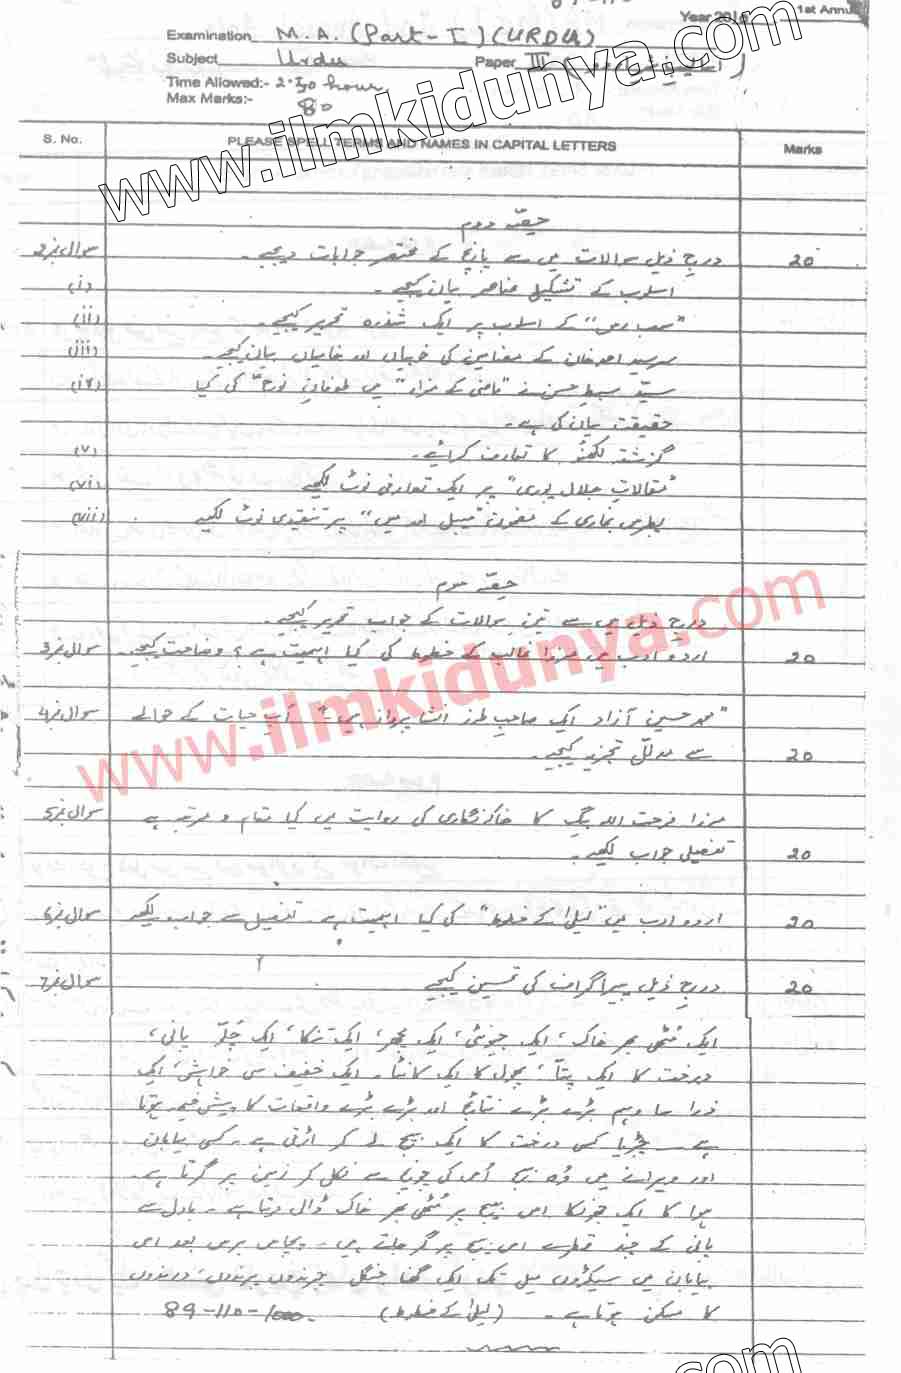 Year 2016 1st Annual
Examination M.A. (Part-I) (URDU)
Subject Urdu Paper III
Time Allowed:- 2:30 hour
Max Marks:- 80
www.ilmkidunya.com
S. No. PLEASE SPELL TERMS AND NAMES IN CAPITAL LETTERS Marks
حصّہ دوم
سوال نمبر2 درج ذیل سوالات میں سے پانچ کے مختصر جوابات دیجیے۔ 20
(i) اسلوب کے تشکیلی عناصر بیان کیجیے۔
(ii) "سب رس" کے اسلوب پر ایک شذرہ تحریر کیجیے۔
(iii) سرسید احمد خان کے مضامین کی خوبیاں اور خامیاں بیان کیجیے۔
(iv) سیّد سبط حسن نے "ماضی کے مزار" میں طوفانِ نوحؑ کی کیا
حقیقت بیان کی ہے۔
(v) گزشتہ لکھنؤ کا تعارف کرائیے۔
(vi) "مقالاتِ جلال پوری" پر ایک تعارفی نوٹ لکھیے
(vii) پطرس بخاری کے مضمون "میبل اور میں" پر تنقیدی نوٹ لکھیے
حصّہ سوم
درج ذیل میں سے تین سوالات کے جواب تحریر کیجیے۔
سوال نمبر3 اردو ادب میں مرزا غالب کے خطوط کی کیا اہمیت ہے؟ وضاحت کیجیے۔ 20
سوال نمبر4 "محمد حسین آزاد ایک صاحبِ طرز انشا پرداز ہیں۔" آبِ حیات کے حوالے
سے مدلّل تجزیہ کیجیے۔ 20
www.ilmkidunya.com
سوال نمبر5 مرزا فرحت اللہ بیگ کا خاکہ نگاری کی روایت میں کیا مقام و مرتبہ ہے
تفصیلی جواب لکھیے۔ 20
سوال نمبر6 اردو ادب میں "لیلیٰ کے خطوط" کی کیا اہمیت ہے۔ تفصیل سے جواب لکھیے 20
سوال نمبر7 درج ذیل پیراگراف کی تحسین کیجیے 20
ایک مُٹھی بھر خاک، ایک چیونٹی، ایک مچھر، ایک تنکا، ایک چُلّو پانی،
درخت کا ایک پتّا، پھول کا ایک کانٹا۔ ایک خفیف سی خراش، ایک
ذرا سا وہم بڑے بڑے نتائج اور بڑے بڑے واقعات کا پیش خیمہ ہوتا
ہے۔ چڑیا کسی درخت کا ایک بیج لے کر اڑتی ہے۔ کسی بیابان
اور ویرانے میں وہ بیج اُس کی چونچ سے نکل کر زمین پر گرتا ہے۔
ہوا کا ایک جھونکا اس بیج پر مُٹھی بھر خاک ڈال دیتا ہے۔ بادل سے
پانی کے چند قطرے اس بیج پر گر جاتے ہیں۔ پچاس برس بعد اس
بیابان میں سیکڑوں میل تک ایک گھنا جنگل چرندوں پرندوں، درندوں
کا مسکن ہوتا ہے۔ (لیلیٰ کے خطوط) 89-110-1000.